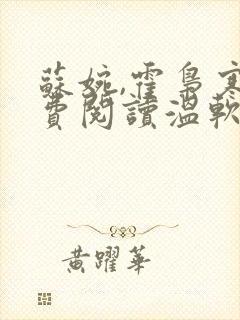 蘇婉,霍梟寒
費閱讀溫軟
黃躍華